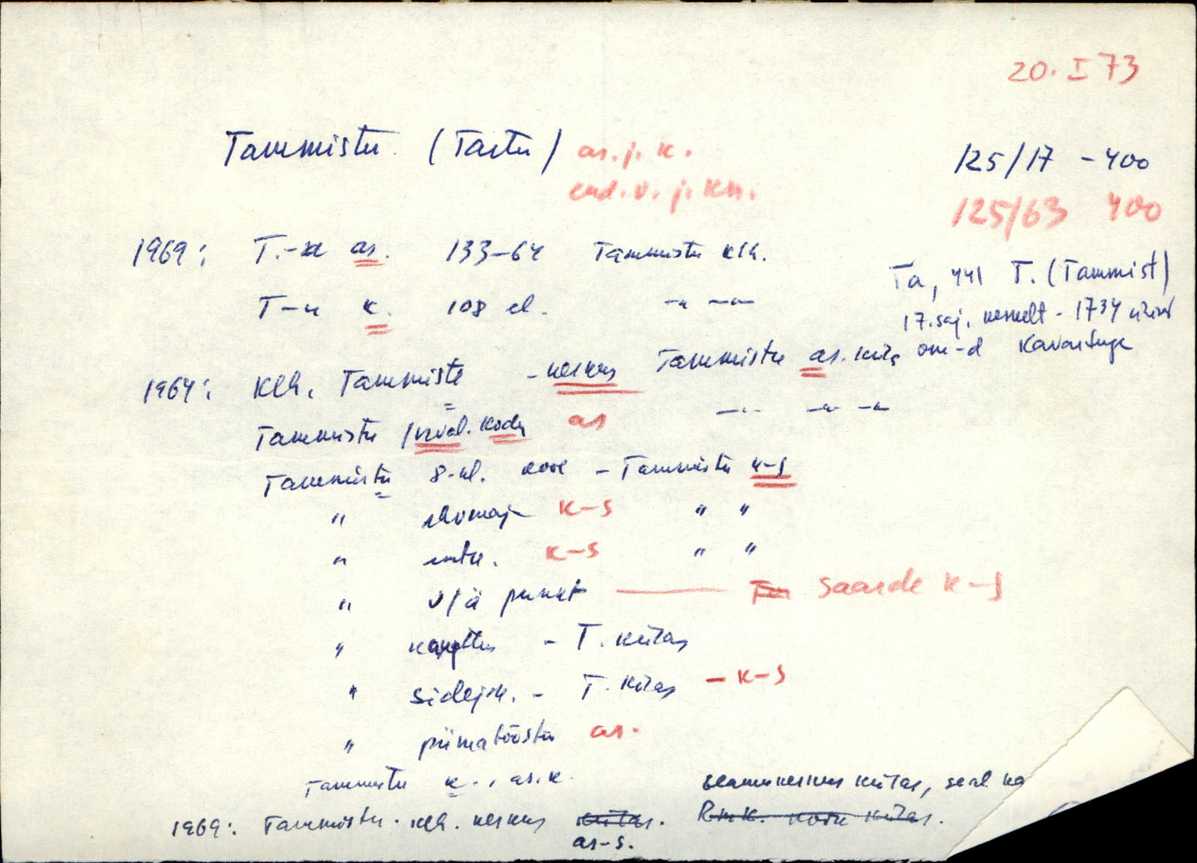 20. I 73
Tammistu (Tartu) as. j. k.
end. v. j. kn.
125/17 - 400
125/63 400
1969: T.-u as. 133-64 Tammistu klh.
T-u k. 108 el. -"- -"-
Ta, 441 T. (Tammist)
17. saj. - 1734
om-d Kavastuga
1964: Klh. Tammistu - keskus Tammistu as. külas
Tammistu as -"- -"- -"-
Tammistu 8-kl. kool - Tammistu k-s
" k-s " "
" k-s " "
" v/ä punkt Saarde k-s
" kauplus - T. külas
" sidejsk. - T. külas - k-s
" piimatööstus as.
Tammistu k., as. k.
külas, seal ka
1969: Tammistu klh. keskus külas. Rmk. külas.
as-s.